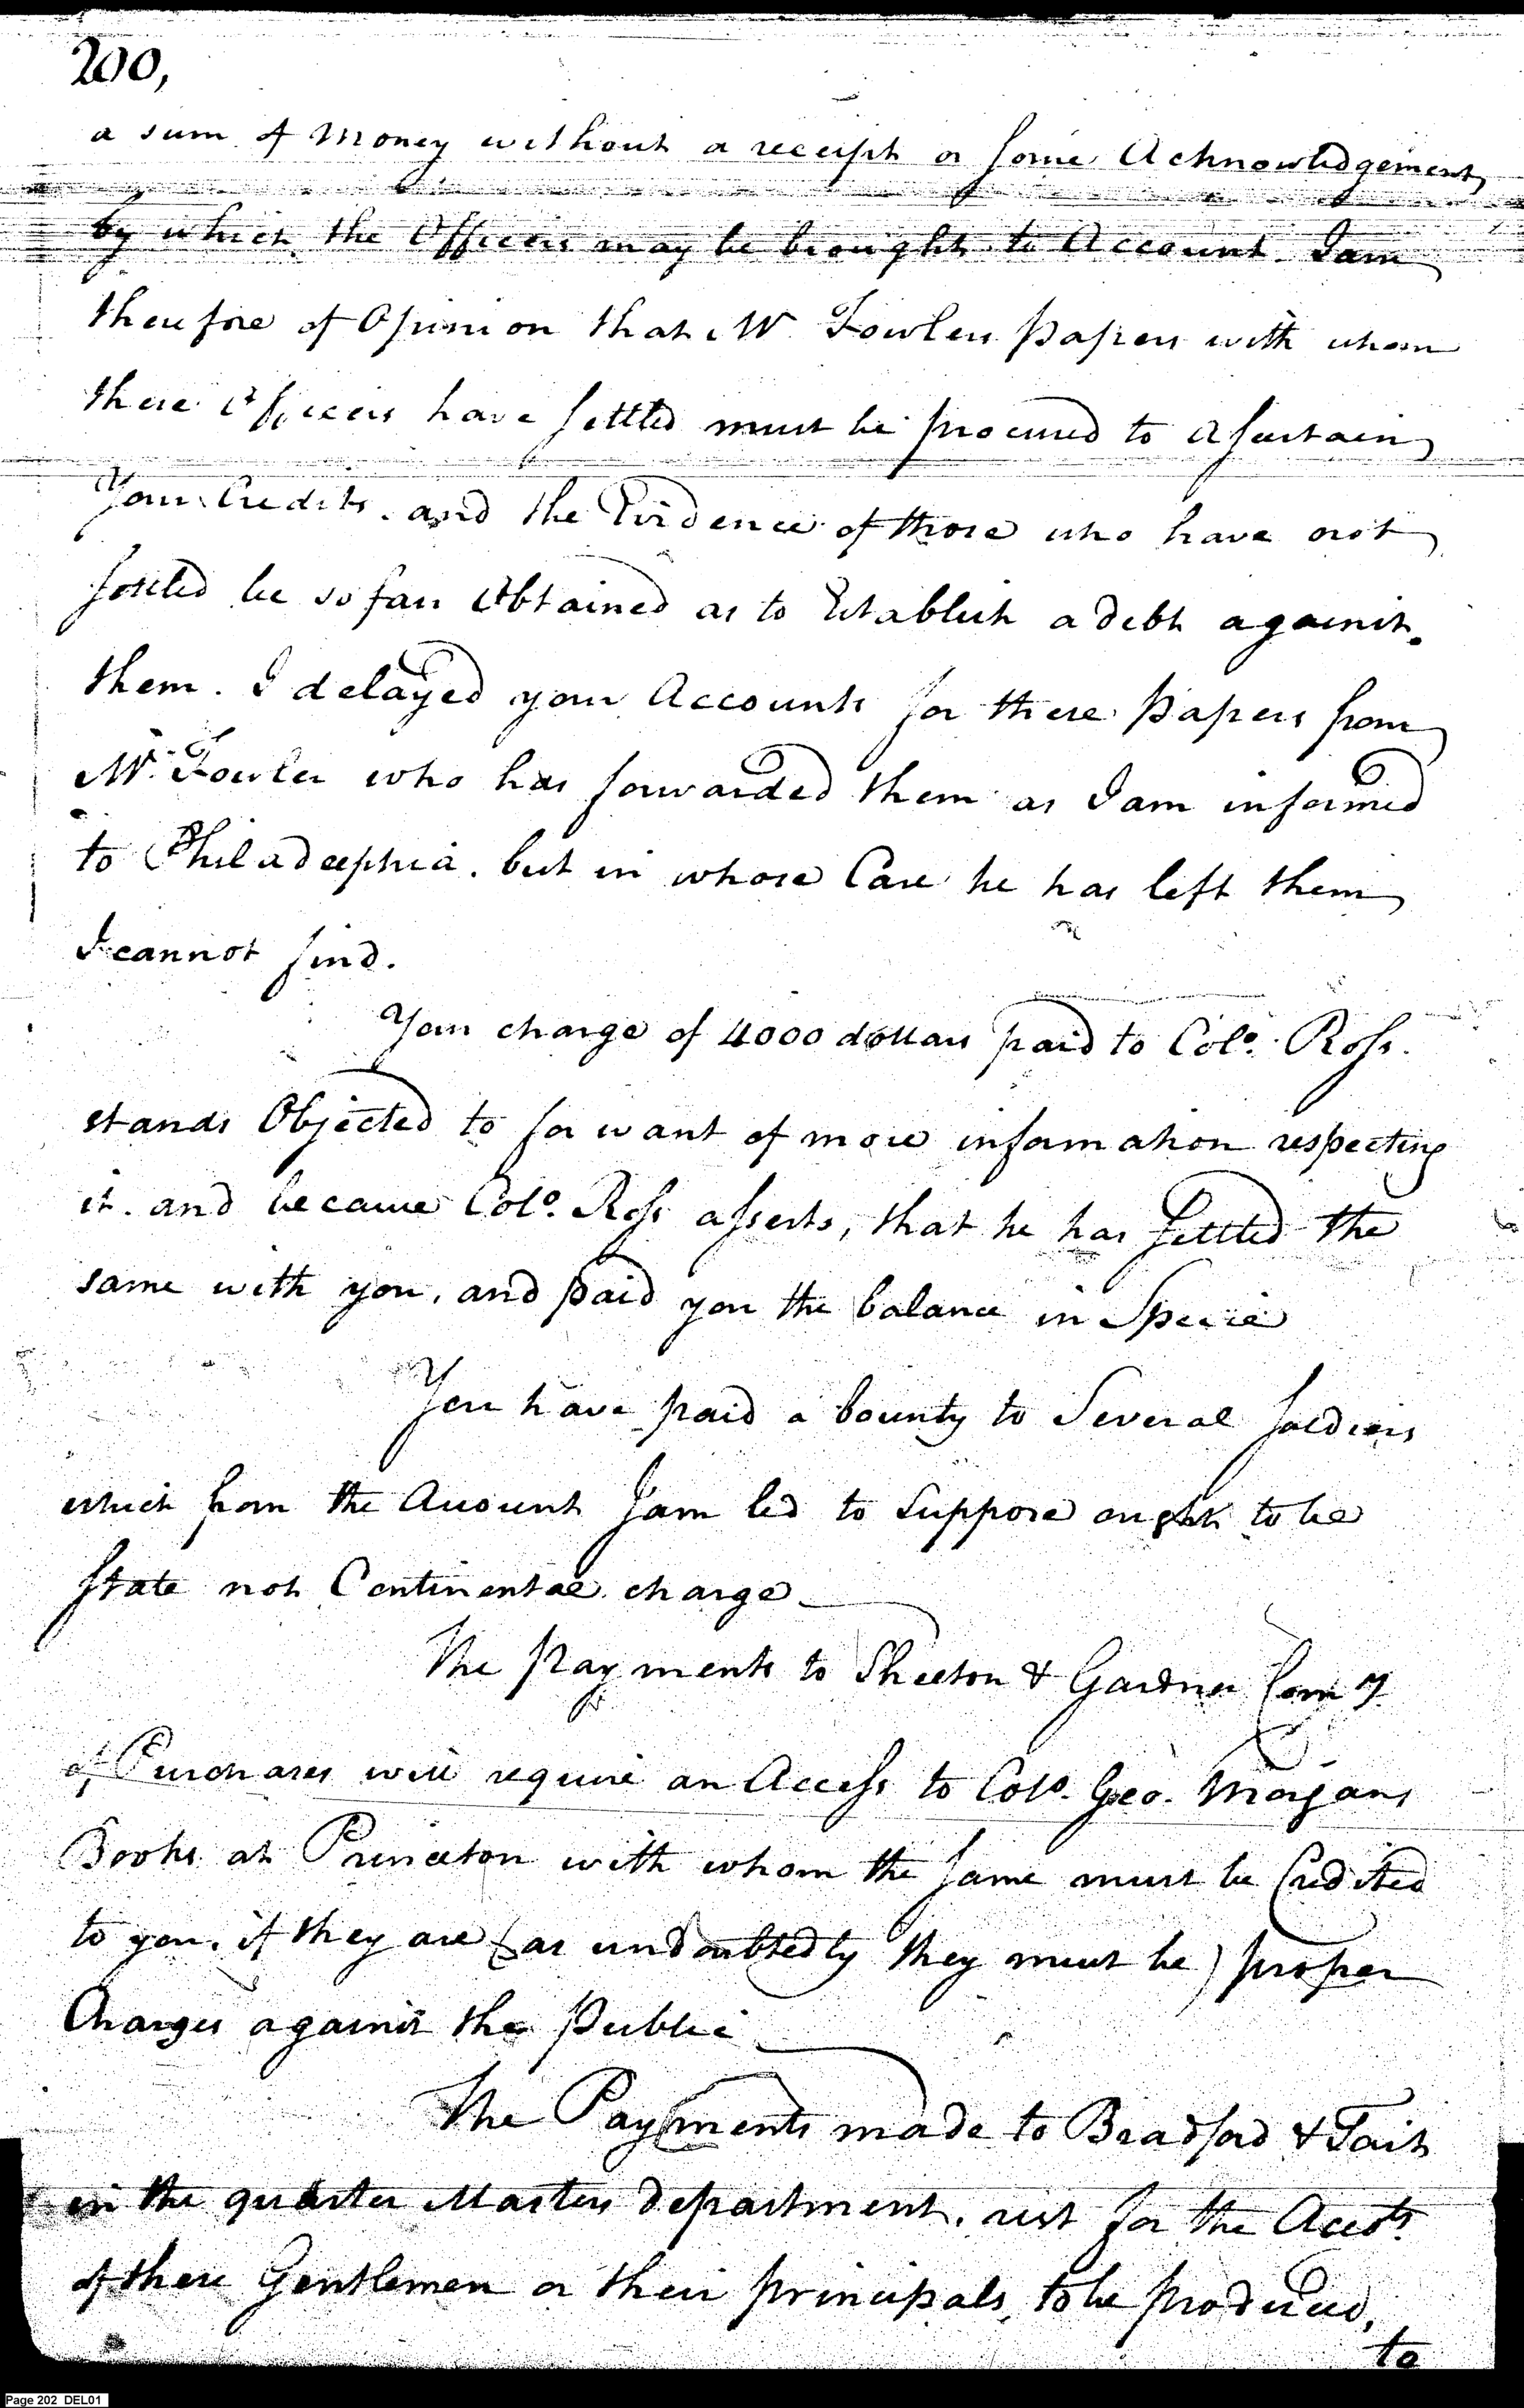 200,
a sum of Money without a receipt or some Acknowledgement
by which the Officers may be brought to Account. I am
therefore of Opinion that Mr Fowlers papers with whom
these Officers have settled must be procured to assertain
Your Credits. and the Evidence of those who have not
settled be so farr Obtained as to Establish a debt against.
them. I delayed your Accounts for these papers from
Mr. Fowler who has forwarded them as I am informed
to Philadelphia. but in whose Care he has left them
I cannot find.
Your charge of 4000 dollars paid to Colo. Ross.
stands Objected to for want of more information respecting
it. and because Colo. Ross asserts, that he has settled the
same with you, and paid you the balance in Specie
You have paid a bounty to Several soldiers
which from the Account I am led to suppose ought to be
state not Continental charge
The payments to & Gardner Comy
of Purchases will require an Access to Colo. Geo. Morgans
Books at Princeton with whom the same must be Credited
to you, if they are (as undoubtedly they must be) proper
Charges against the Public
The Payments made to Bradford & Tait
in the quarter Masters department. rest for the Accots
of these Gentlemen or their principals, to be produced,
to
Page 202 DEL01